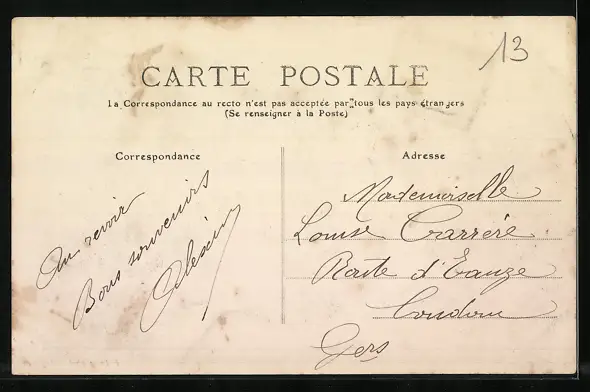 13
CARTE POSTALE
La Correspondance au recto n'est pas acceptée par tous les pays étrangers
(Se renseigner à la Poste)
Correspondance
Au revoir
Bons souvenirs
Adresse
Mademoiselle
Louise Carrère
Route d'Eauze
Condom
Gers